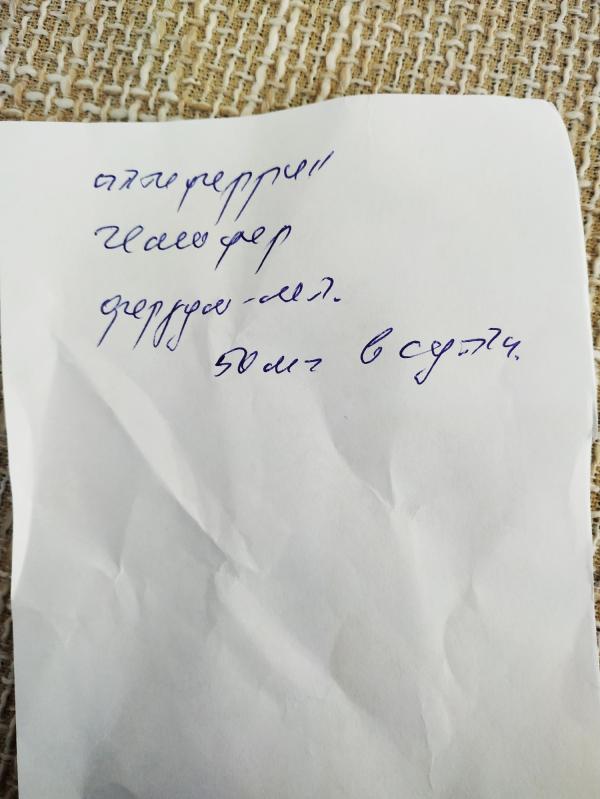 актиферрин
гемофер
феррум-лек.
50 мг в сутки.